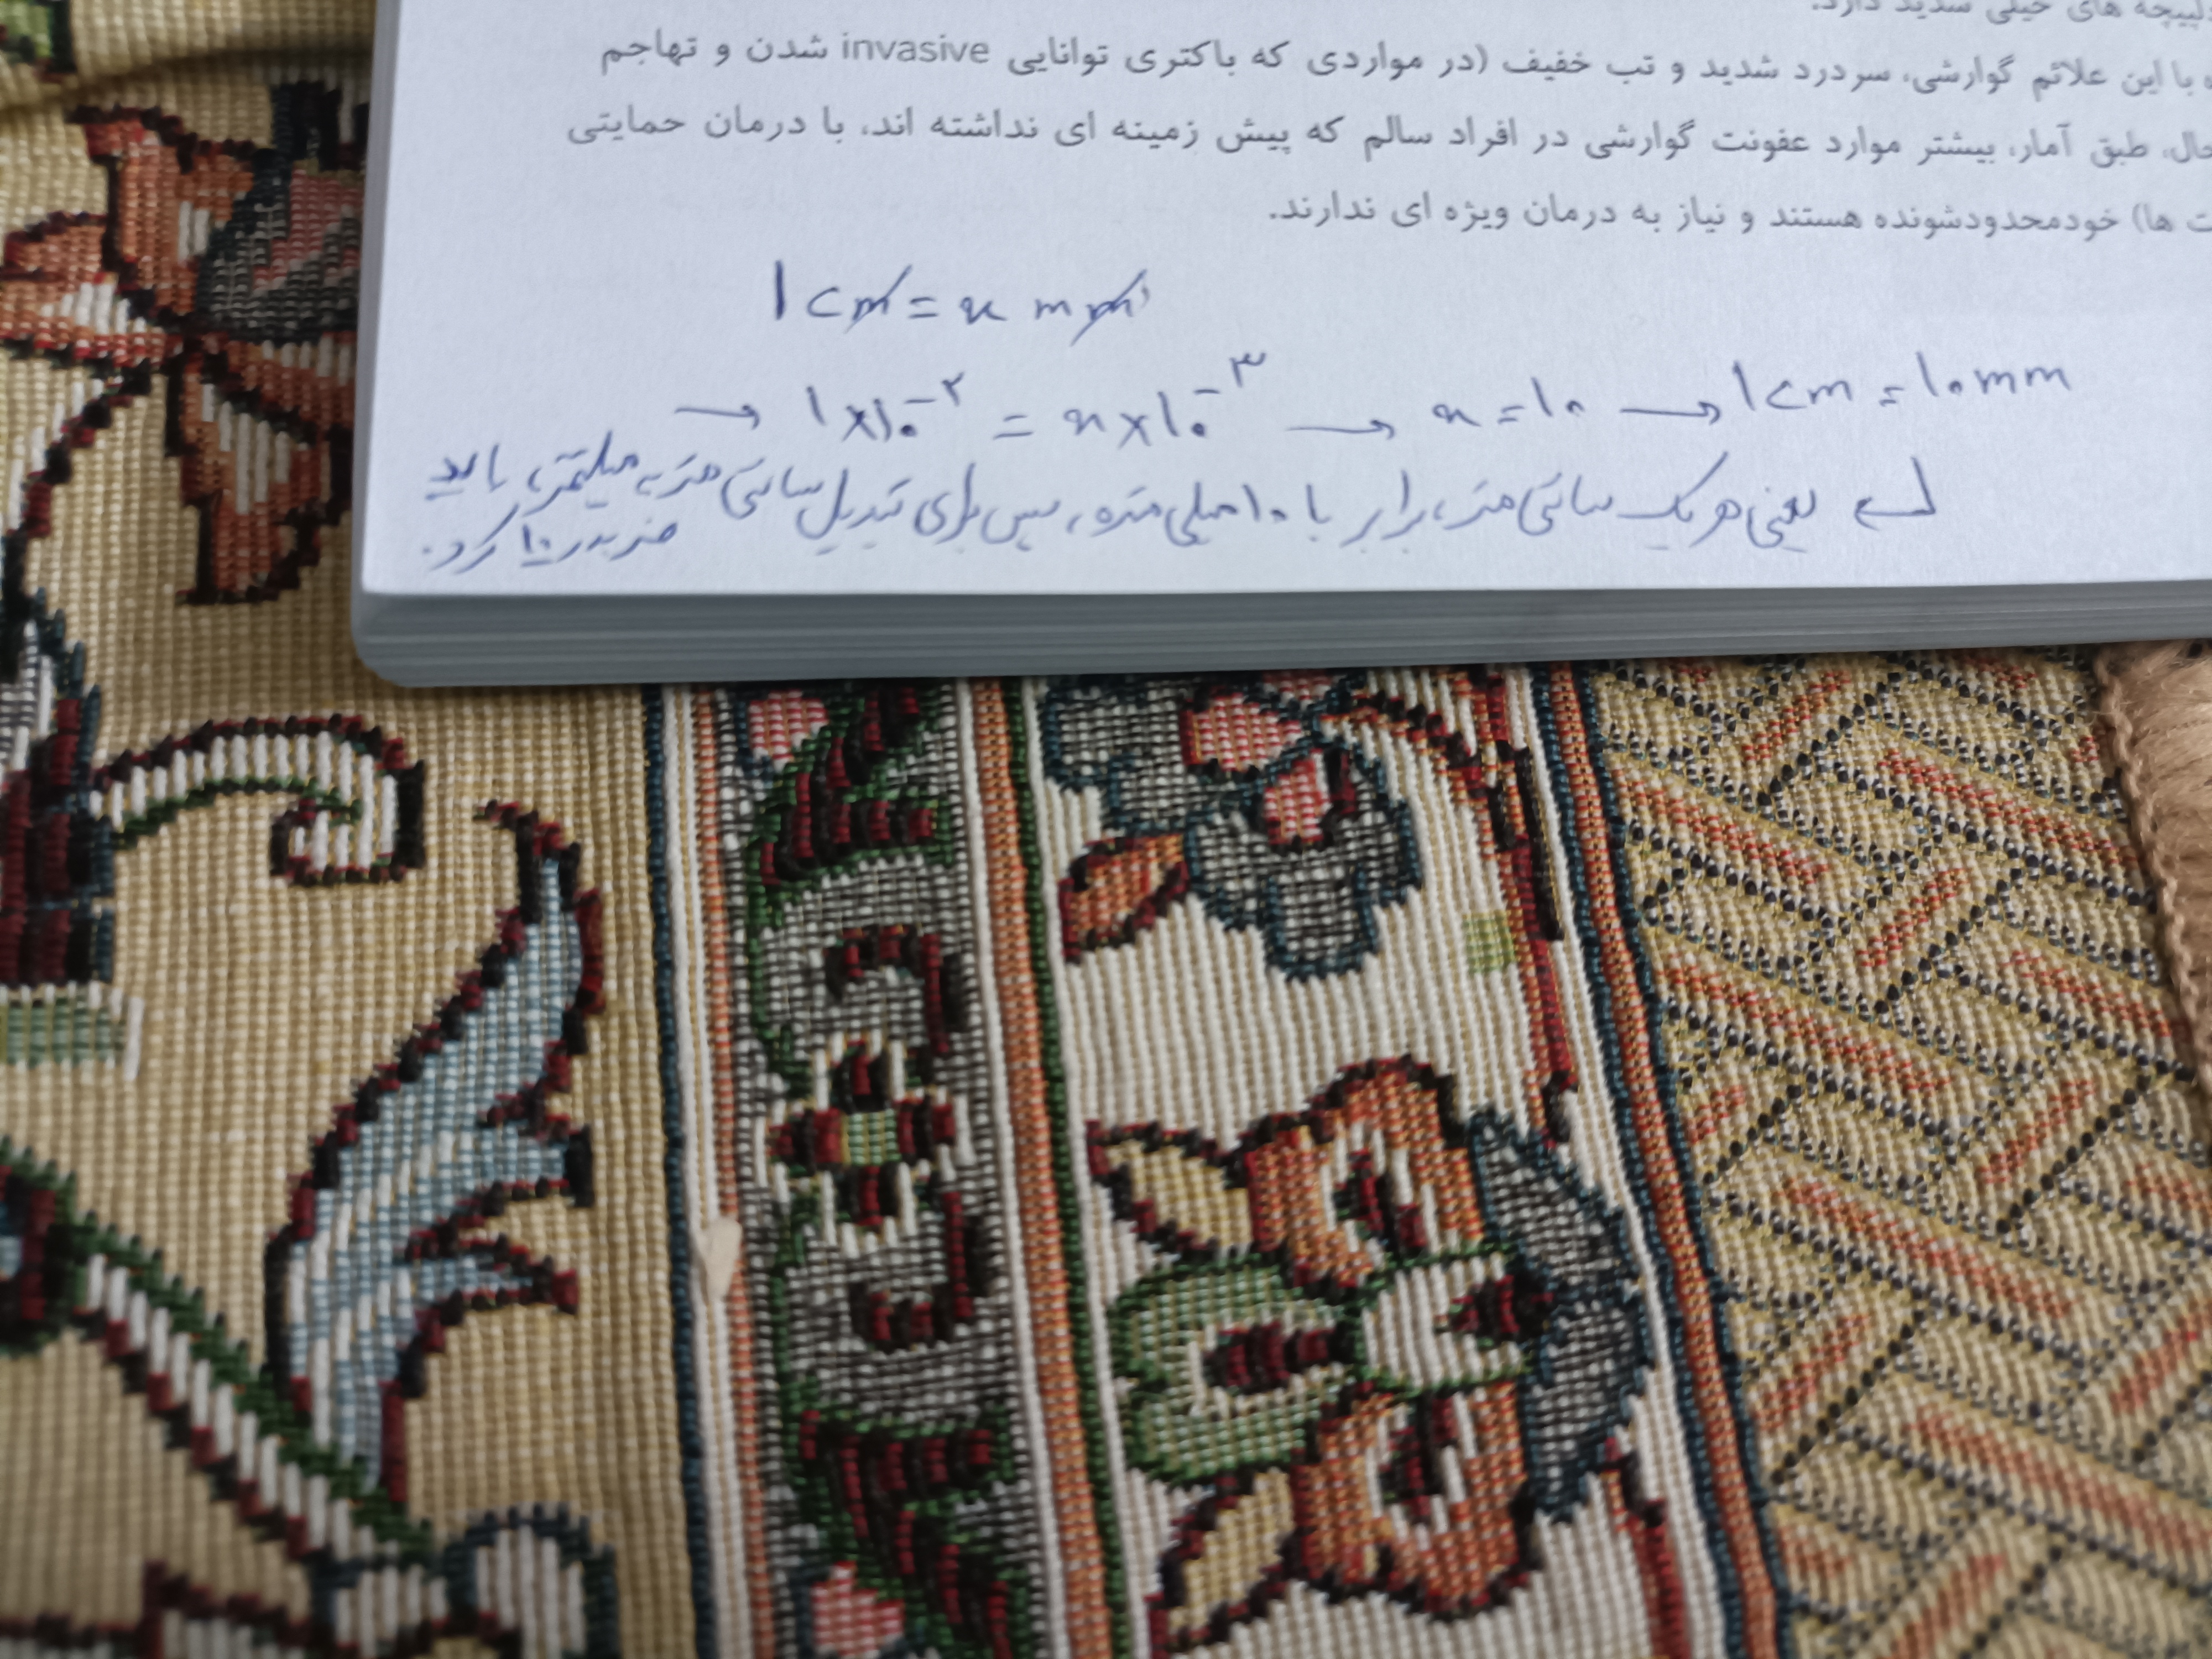 دلپیچه های خیلی شدید دارد.
با این علائم گوارشی، سردرد شدید و تب خفیف (در مواردی که باکتری توانایی invasive شدن و تهاجم
حال، طبق آمار، بیشتر موارد عفونت گوارشی در افراد سالم که پیش زمینه ای نداشته اند، با درمان حمایتی
ها) خودمحدودشونده هستند و نیاز به درمان ویژه ای ندارند.
1 cm = x mm
→ ۱×۱۰⁻² = x×۱۰⁻³ → x=۱۰ → ۱cm = ۱۰mm
یعنی هر یک سانتی متر، برابر با ۱۰ میلی متره، پس برای تبدیل سانتی متر به میلیمتر، باید
ضربدر ۱۰ کرد.